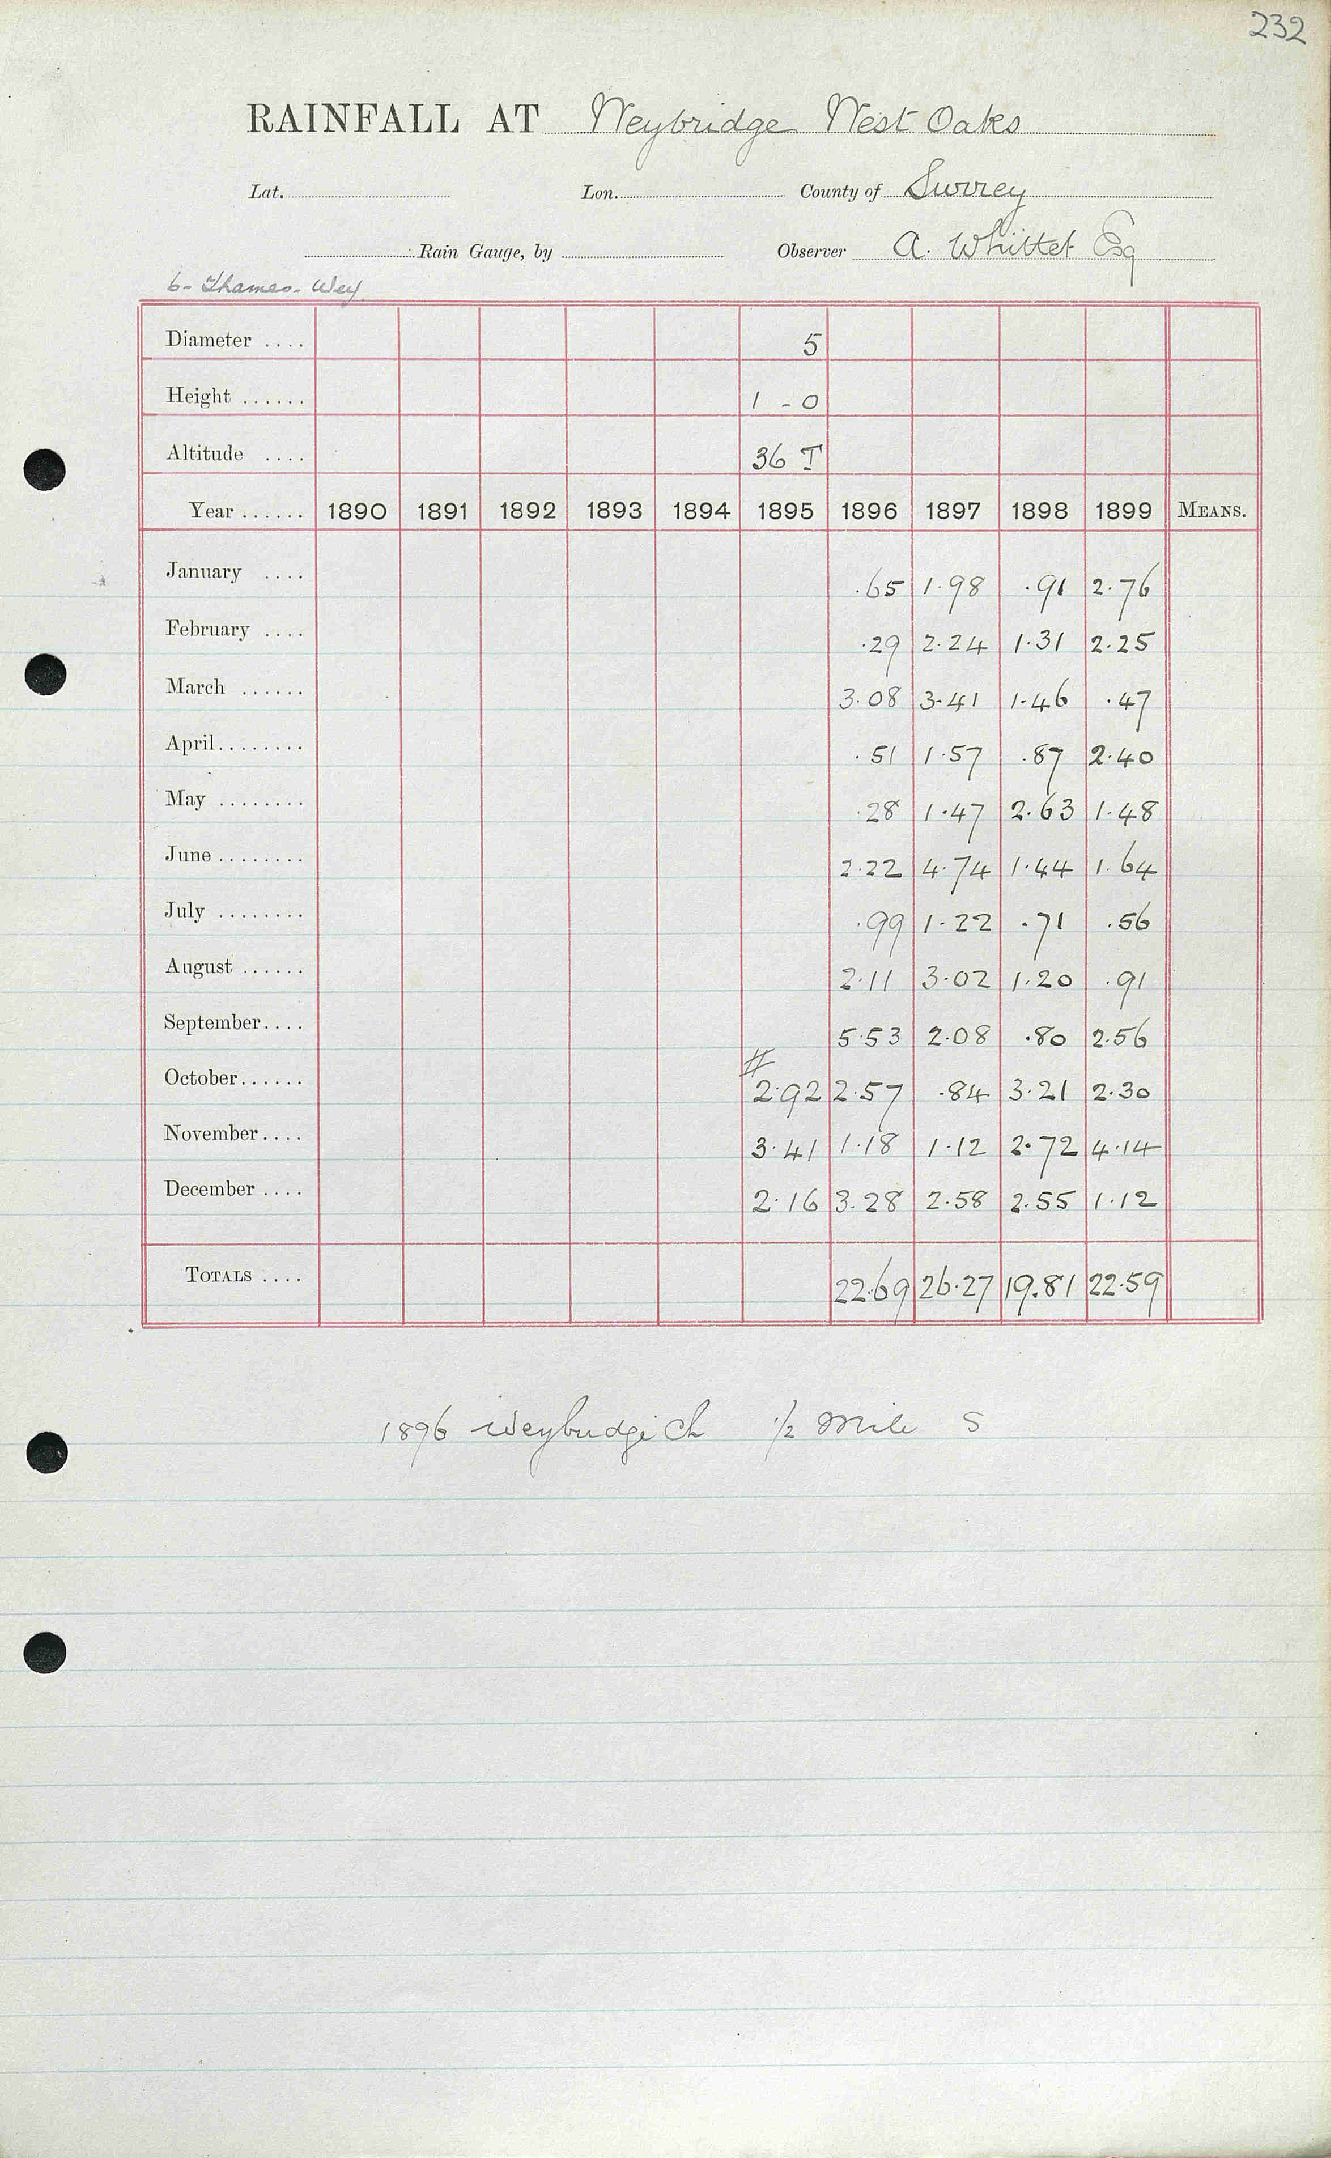 232
RAINFALL AT Weybridge West Oaks
Lat. Lon. County of Surrey
Rain Gauge, by Observer A. Whittet Esq
6 - Thames - Wey
Diameter .... 5
Height ...... 1 - 0
Altitude .... 36 T
Year ...... 1890 1891 1892 1893 1894 1895 1896 1897 1898 1899 MEANS.
January .... .65 1.98 .91 2.76
February .... .29 2.24 1.31 2.25
March ...... 3.08 3.41 1.46 .47
April........ .51 1.57 .87 2.40
May ........ .28 1.47 2.63 1.48
June ........ 2.22 4.74 1.44 1.64
July ........ .99 1.22 .71 .56
August ...... 2.11 3.02 1.20 .91
September.... 5.53 2.08 .80 2.56
#
October...... 2.92 2.57 .84 3.21 2.30
November.... 3.41 1.18 1.12 2.72 4.14
December .... 2.16 3.28 2.58 2.55 1.12
TOTALS .... 22.69 26.27 19.81 22.59
1896 Weybridge Ch 1/2 Mile S